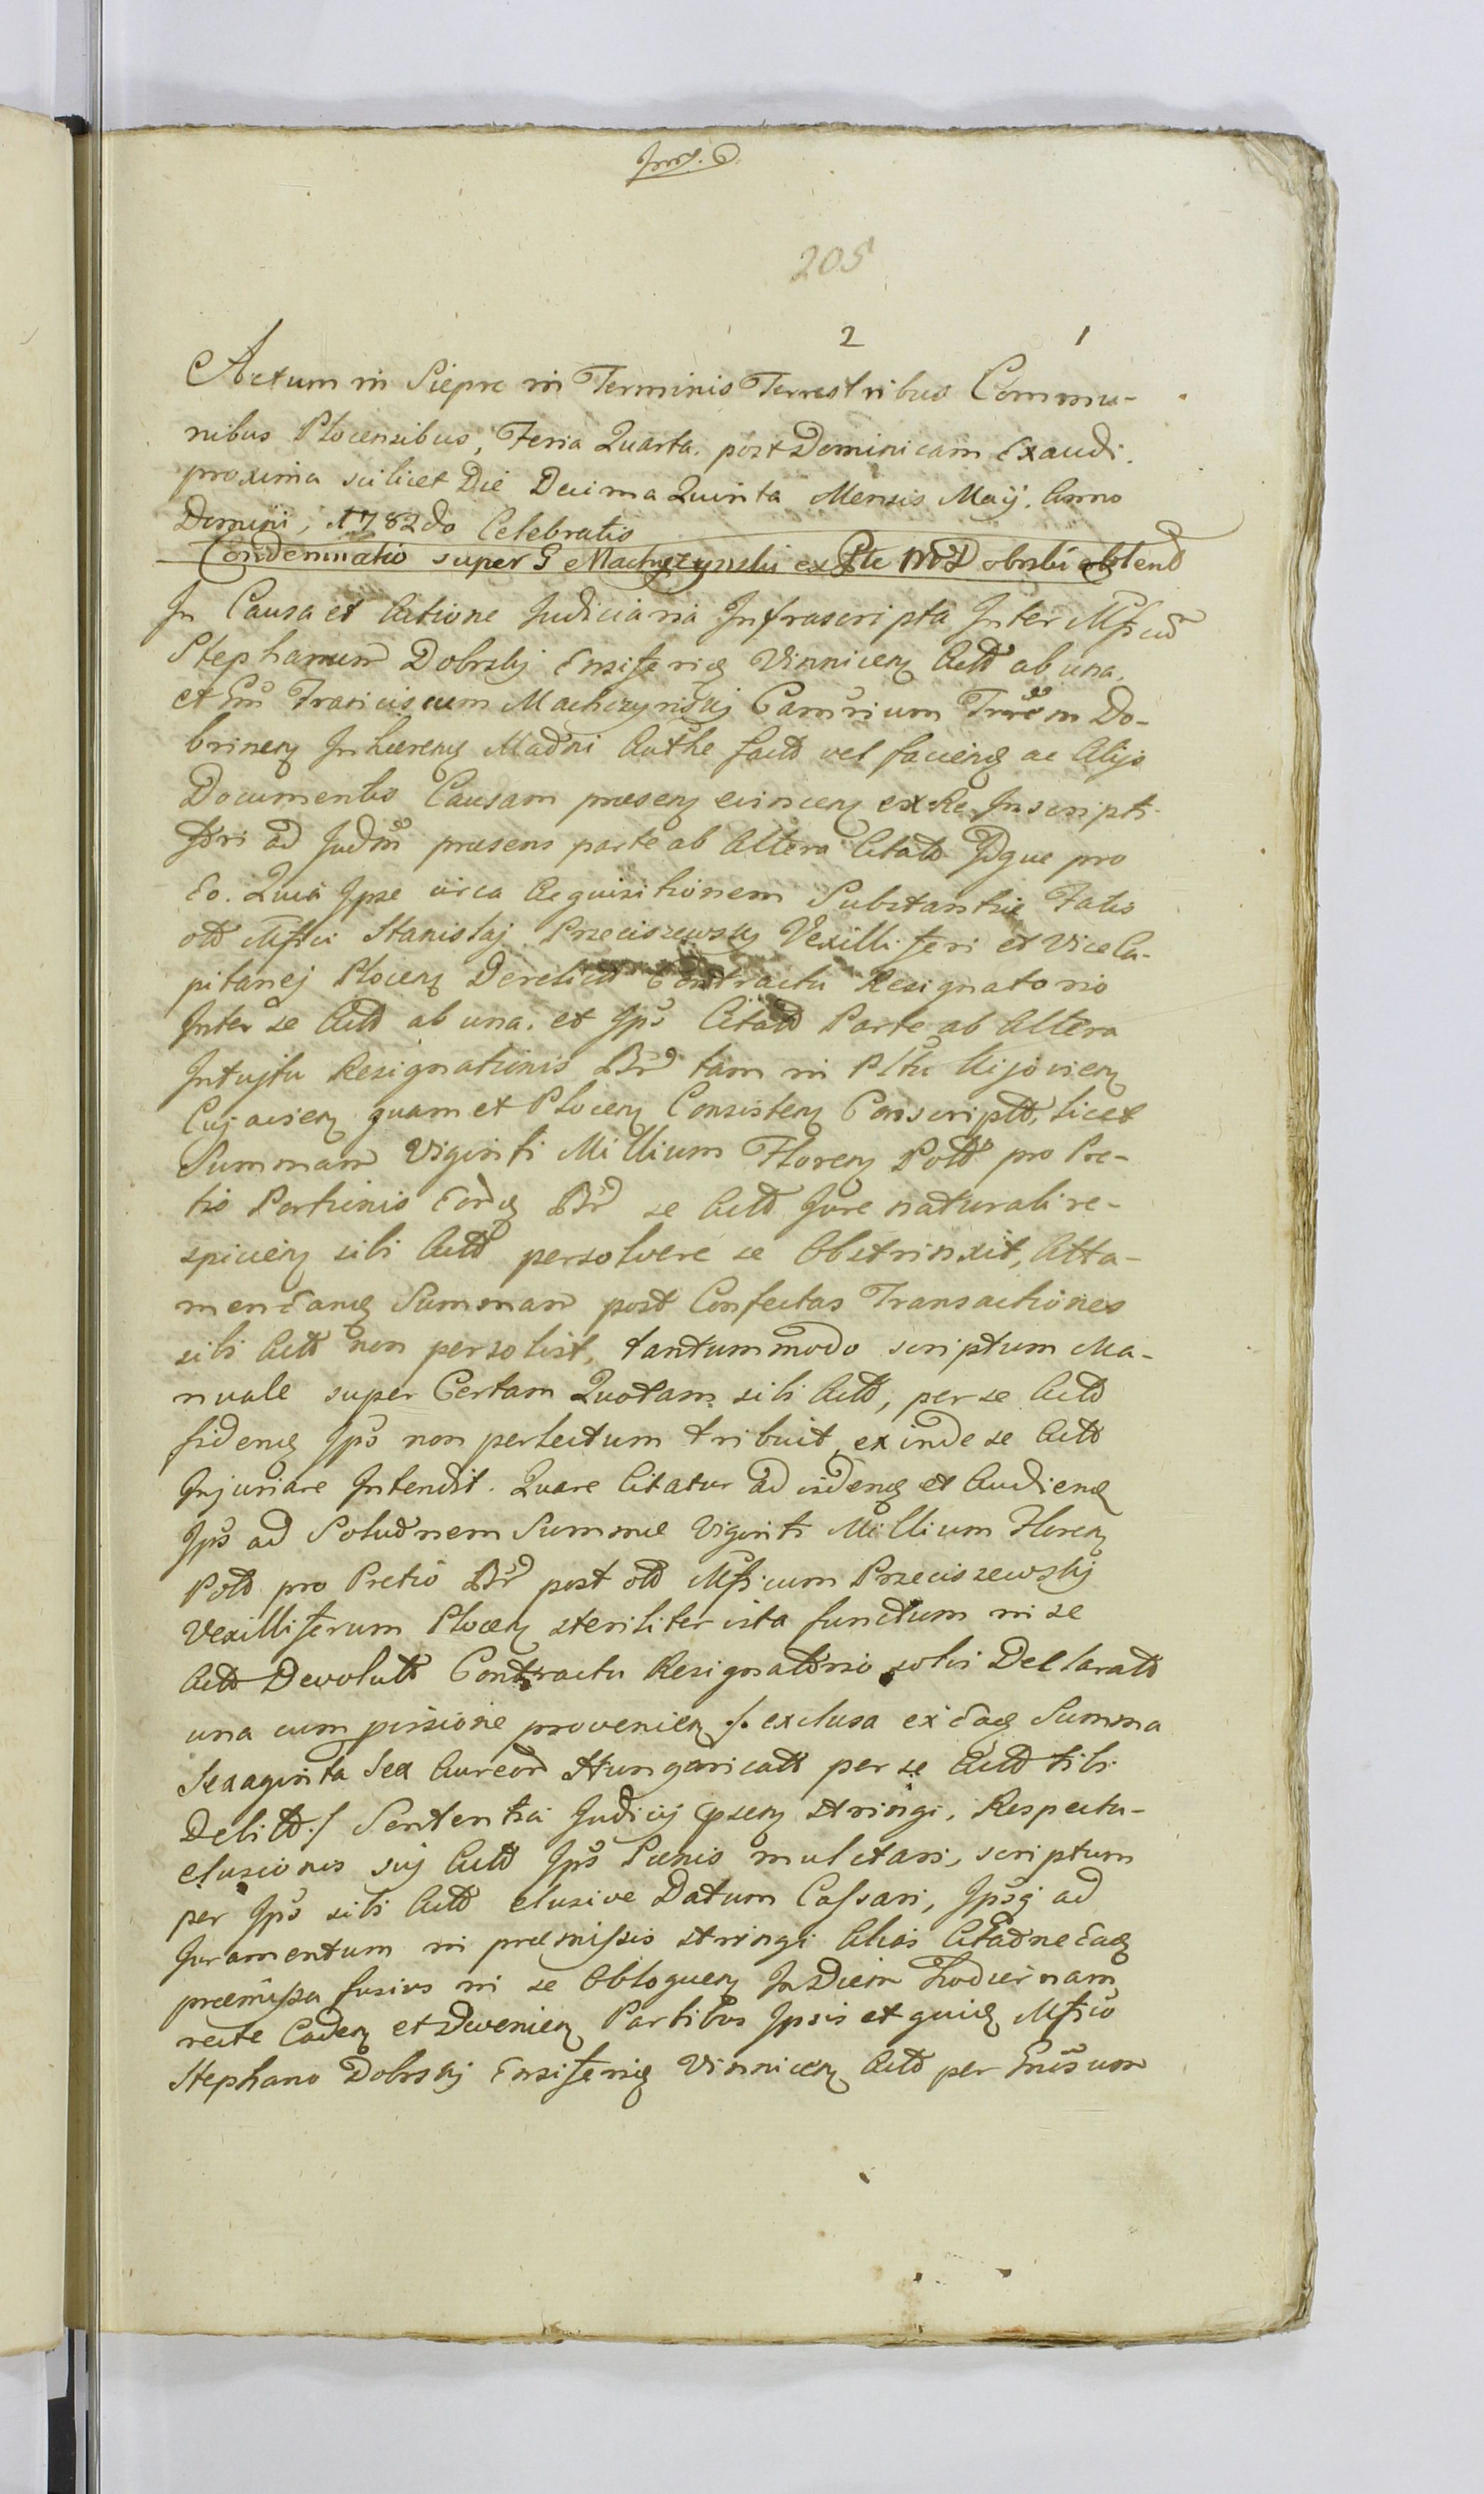 205
2 1
Actum in Siepre in Terminis Terrestribus Commu-
nibus Plocensibus, Feria Quarta post Dominicam Exaudi
proxima scilicet Die Decima Quinta Mensis Maij. Anno
Domini, 1782do Celebratis
Condemnatio super G Machczynski ex Pte MD obrski obtend
In Causa et Actione Judiciaria Infrascripta Inter Mficũ
Stephanum Dobrskj Ensiferiq Vinnicenz Actō ab una
et Franciscum Machczynskj Camrium Do-
brinenz Inhærenq Madni facō vel facienq ac Alijs
Documentis Causam præsenz evincenz ex Re Inscripti
ad Judm præsens parte ab Altera Citatō Idque pro
Eo. Quia Ipse circa Acquisitionem Substantiæ Fatis
otō Mfici Stanislaj Przeciszewskj Vexilliferi et Vice Ca-
pitanej Plocenz Derelictō Contractu Resignatorio
Inter se Actō ab una. et Ips Citatō Parte ab Altera
Intujtu Resignationis Br tam in Pltu Kijovienz
Cujavienz quam et Plocenz Consistenz Conscriptō, licet
Summam Viginti Millium Florenz Potō pro Pre-
tio Portionis Eorq Br se Actō Jure naturali re-
spicienz sibi Actō persolvere se Obstrinxit, Atta-
men Eanq Summam post Confectas Transactiones
sibi Actō non persolvit, tantummodo scriptum Ma-
nuale super Certam Quotam sibi Actō, per se Actō
fidenq Ips non perlectum tribuit, exinde se Actō
Injuriare Intendit. Quare Citatur ad videnq et Audienq
Ips ad Solud̃nem Summæ Viginti Millium Florenz
Potō pro Pretio Br post otō Mficum Przeciszewskj
Vexilliferum Plocenz steriliter vita functum in se
Actō Devolutō Contractu Resignatorio solvi Declaratō
una cum provenienz ./. exclusa ex Eaq Summa
Sexaginta Sex Aureor Hungaricatō per se Actō sibi
Debitō./ Sententia Judicij præsenz stringi, Respectu-
elusionis suj Actō Ips Pœnis mulctari, scriptum
per Ips sibi Actō elusive Datum Cassari, Ipsq ad
Juramentum in præmissis stringi Alias Citad̃ne Eaq
præmissa fusius in se Obloquenz In Diem Hodiernam
recte Cadenz et Devenienz Partibus Ipsis et quidq Mfico
Stephano Dobrskj Ensiferiq Vinnicenz Actō per